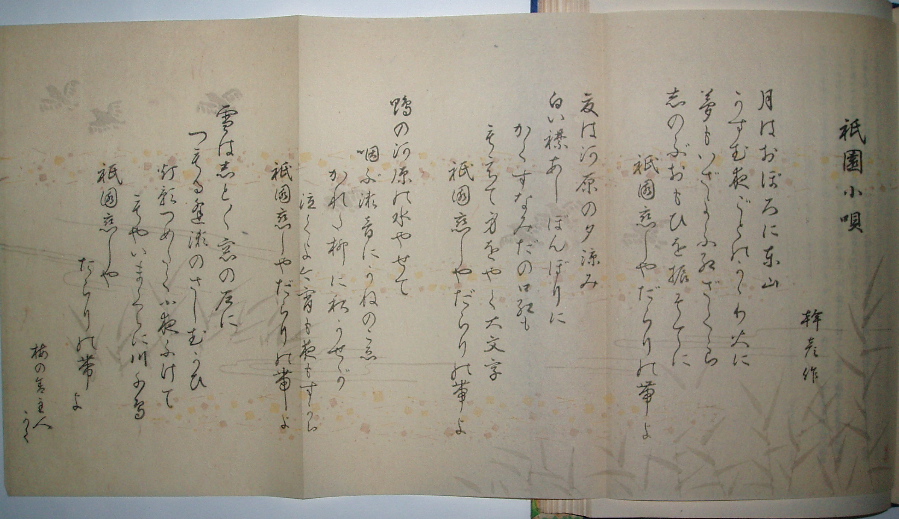 祇園小唄
幹彦作
月はおぼろに東山
かすむ夜ごとのかゞり火に
夢もいざよふ紅ざくら
志のぶおもひを振そでに
祇園恋しやだらりの帯よ
夏は河原の夕涼み
白い襟あしぼんぼりに
かくすなみだの口紅も
もえて身をやく大文字
祇園恋しやだらりの帯よ
鴨の河原の水やせて
咽ぶ瀬音にかねのこゑ
かれた柳に秋かぜが
泣くよ今宵も夜もすがら
祇園恋しやだらりの帯よ
雪は志と〳〵窓の居に
つもる逢瀬のさしむかひ
灯影つめたく小夜ふけて
もやいまくらに川千鳥
祇園恋しや
だらりの帯よ
梅の舎主人